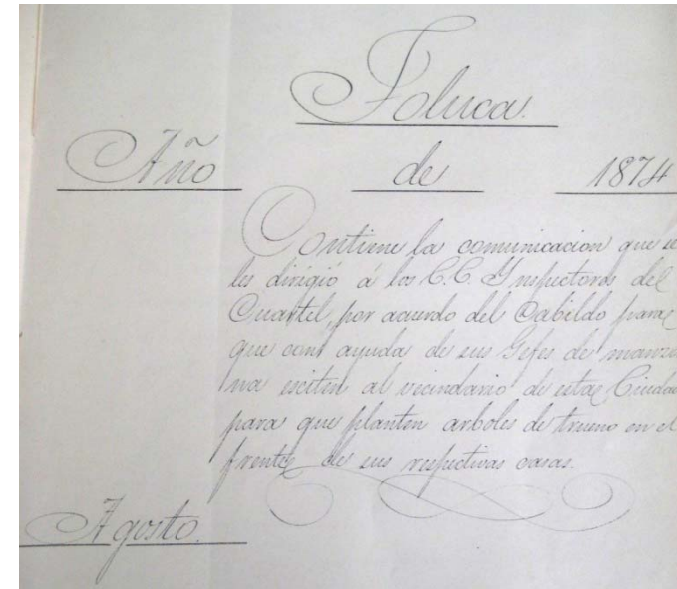 Toluca.
Año de 1874
Contiene la comunicacion que se
les dirigió á los C.C. Ynspectores del
Cuartel, por acuerdo del Cabildo para
que con ayuda de sus Gefes de manza
na esciten al vecindario de esta Ciudad
para que planten arboles de trueno en el
frente de sus respectivas casas.
Agosto.